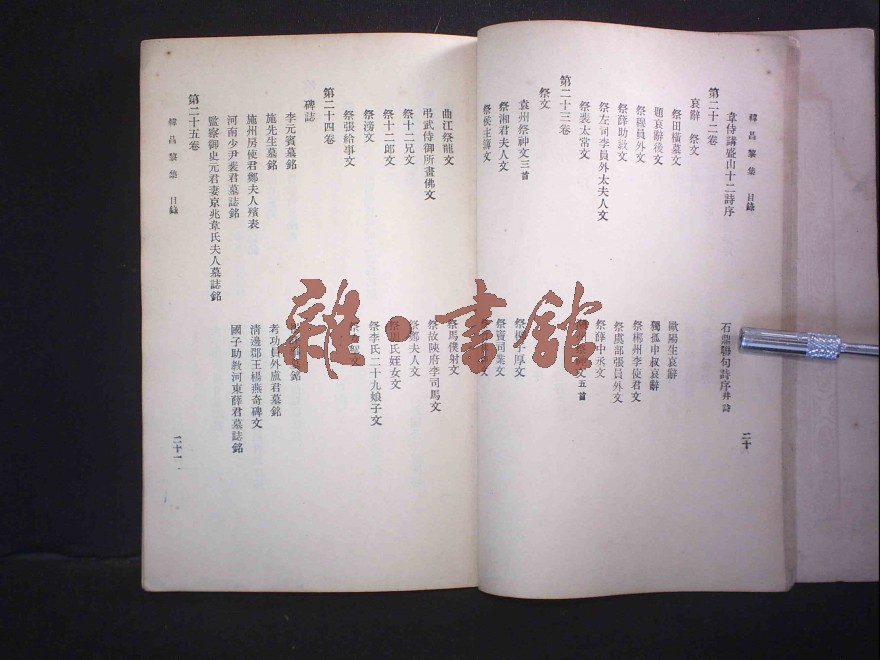 韓昌黎集 目錄
二十
韋侍講盛山十二詩序
石鼎聯句詩序并詩
第二十二卷
哀辭 祭文
歐陽生哀辭
題哀辭後文
獨孤申叔哀辭
祭田橫墓文
祭郴州李使君文
祭薛助教文
祭虞部張員外文
祭左司李員外太夫人文
祭薛中丞文
祭裴太常文
文五首
第二十三卷
祭文
袁州祭神文三首
厚文
祭湘君夫人文
祭竇司業文
祭侯主簿文
祭馬僕射文
曲江祭龍文
祭故陝府李司馬文
弔武侍御所畫佛文
祭十二兄文
鄭夫人文
祭十二郎文
氏姪女文
祭滂文
祭李氏二十九娘子文
祭張給事文
第二十四卷
碑誌
李元賓墓銘
施先生墓銘
考功員外盧君墓銘
施州房使君鄭夫人殯表
清邊郡王楊燕奇碑文
河南少尹裴君墓誌銘
國子助教河東薛君墓誌銘
監察御史元君妻京兆韋氏夫人墓誌銘
第二十五卷
韓昌黎集 目錄
二十一
雜·書館